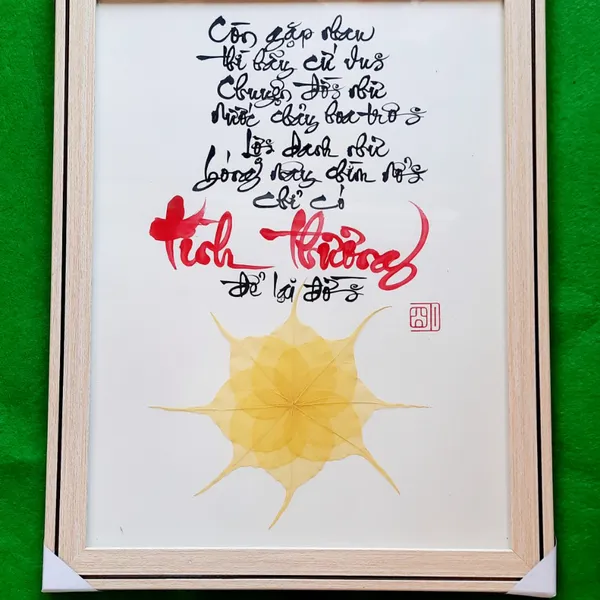 Còn gặp nhau
thì hãy cứ vui
Chuyện đời như
nước chảy hoa trôi
Lợi danh như
bóng mây chìm nổi
chỉ có
tình thương
để lại đời